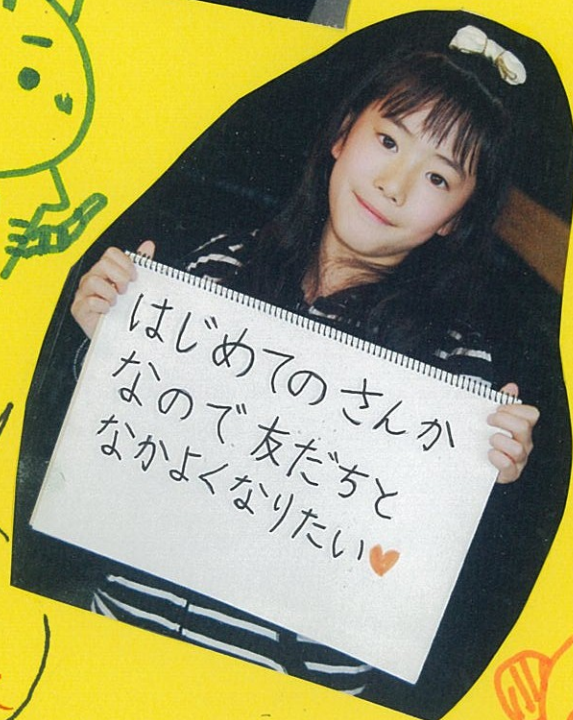 はじめてのさんか
なので友だちと
なかよくなりたい♥